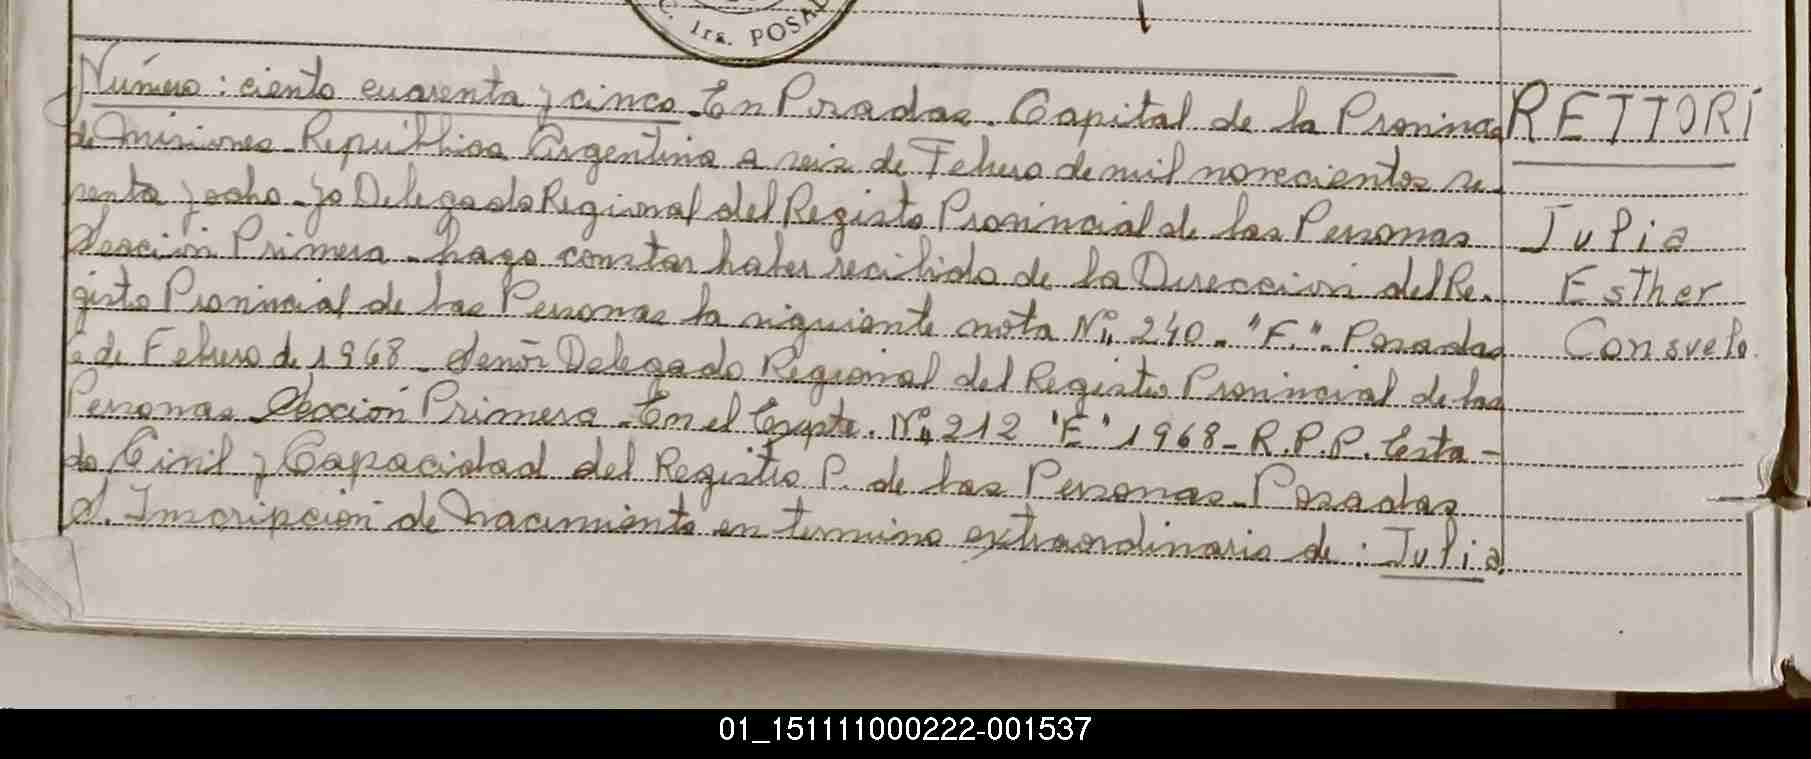 C. 1ra. POSAD
Número: ciento cuarenta y cinco. En Posadas. Capital de la Provincia
de Misiones. República Argentina a seis de Febrero de mil novecientos se-
senta y ocho. yo Delegado Regional del Registro Provincial de las Personas
Sección Primera. hago constar haber recibido de la Dirección del Re-
gistro Provincial de las Personas la siguiente nota Nº 240. "F.". Posadas
6 de Febrero de 1968. Señor Delegado Regional del Registro Provincial de las
Personas Sección Primera. En el Expte. Nº 212 "E" 1968-R.P.P. Esta-
do Civil y Capacidad del Registro P. de las Personas. Posadas
S. Inscripción de nacimiento en termino extraordinario de: Julia
RETTORI
Julia
Esther
Consuelo.
01_151111000222-001537